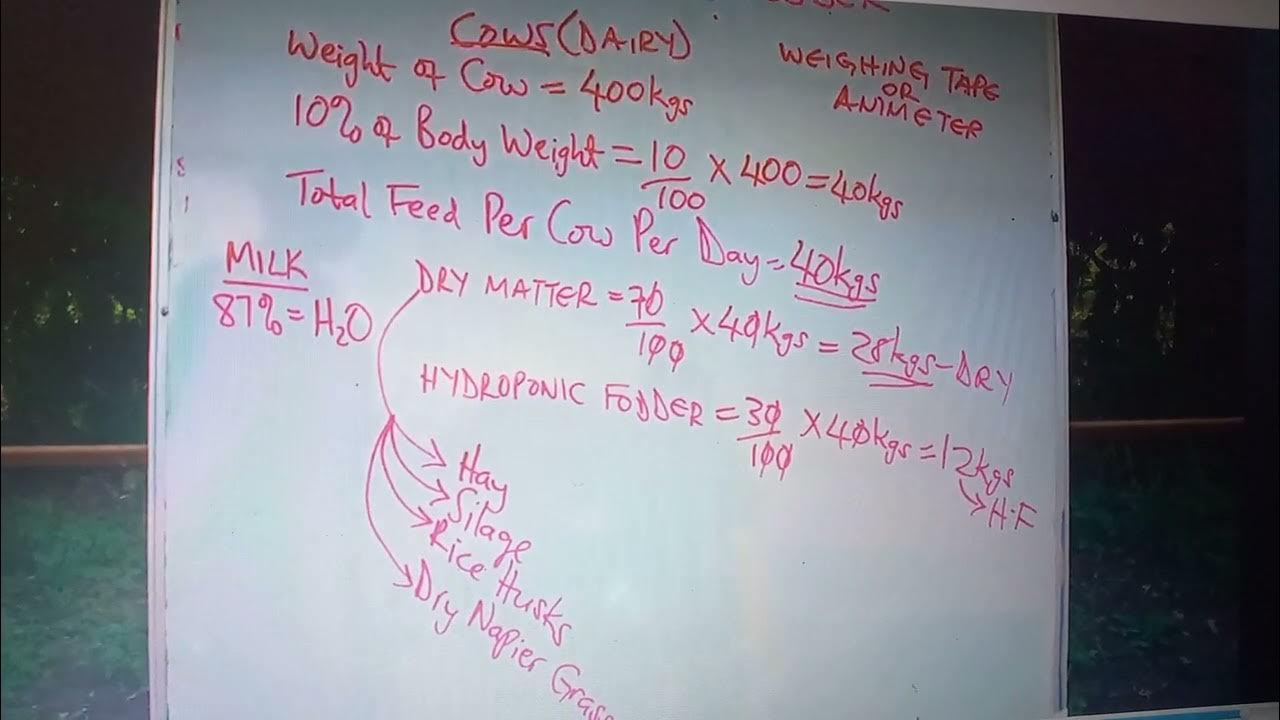 COWS (DAIRY)
Weight of Cow = 400kgs
WEIGHING TAPE
OR
ANIMETER
10% of Body Weight = 10/100 × 400 = 40kgs
Total Feed Per Cow Per Day = 40kgs
MILK
87% = H₂O
DRY MATTER = 70/100 × 40kgs = 28kgs - DRY
HYDROPONIC FODDER = 30/100 × 40kgs = 12kgs
→ H.F
Hay
Silage
Rice Husks
Dry Napier Grass